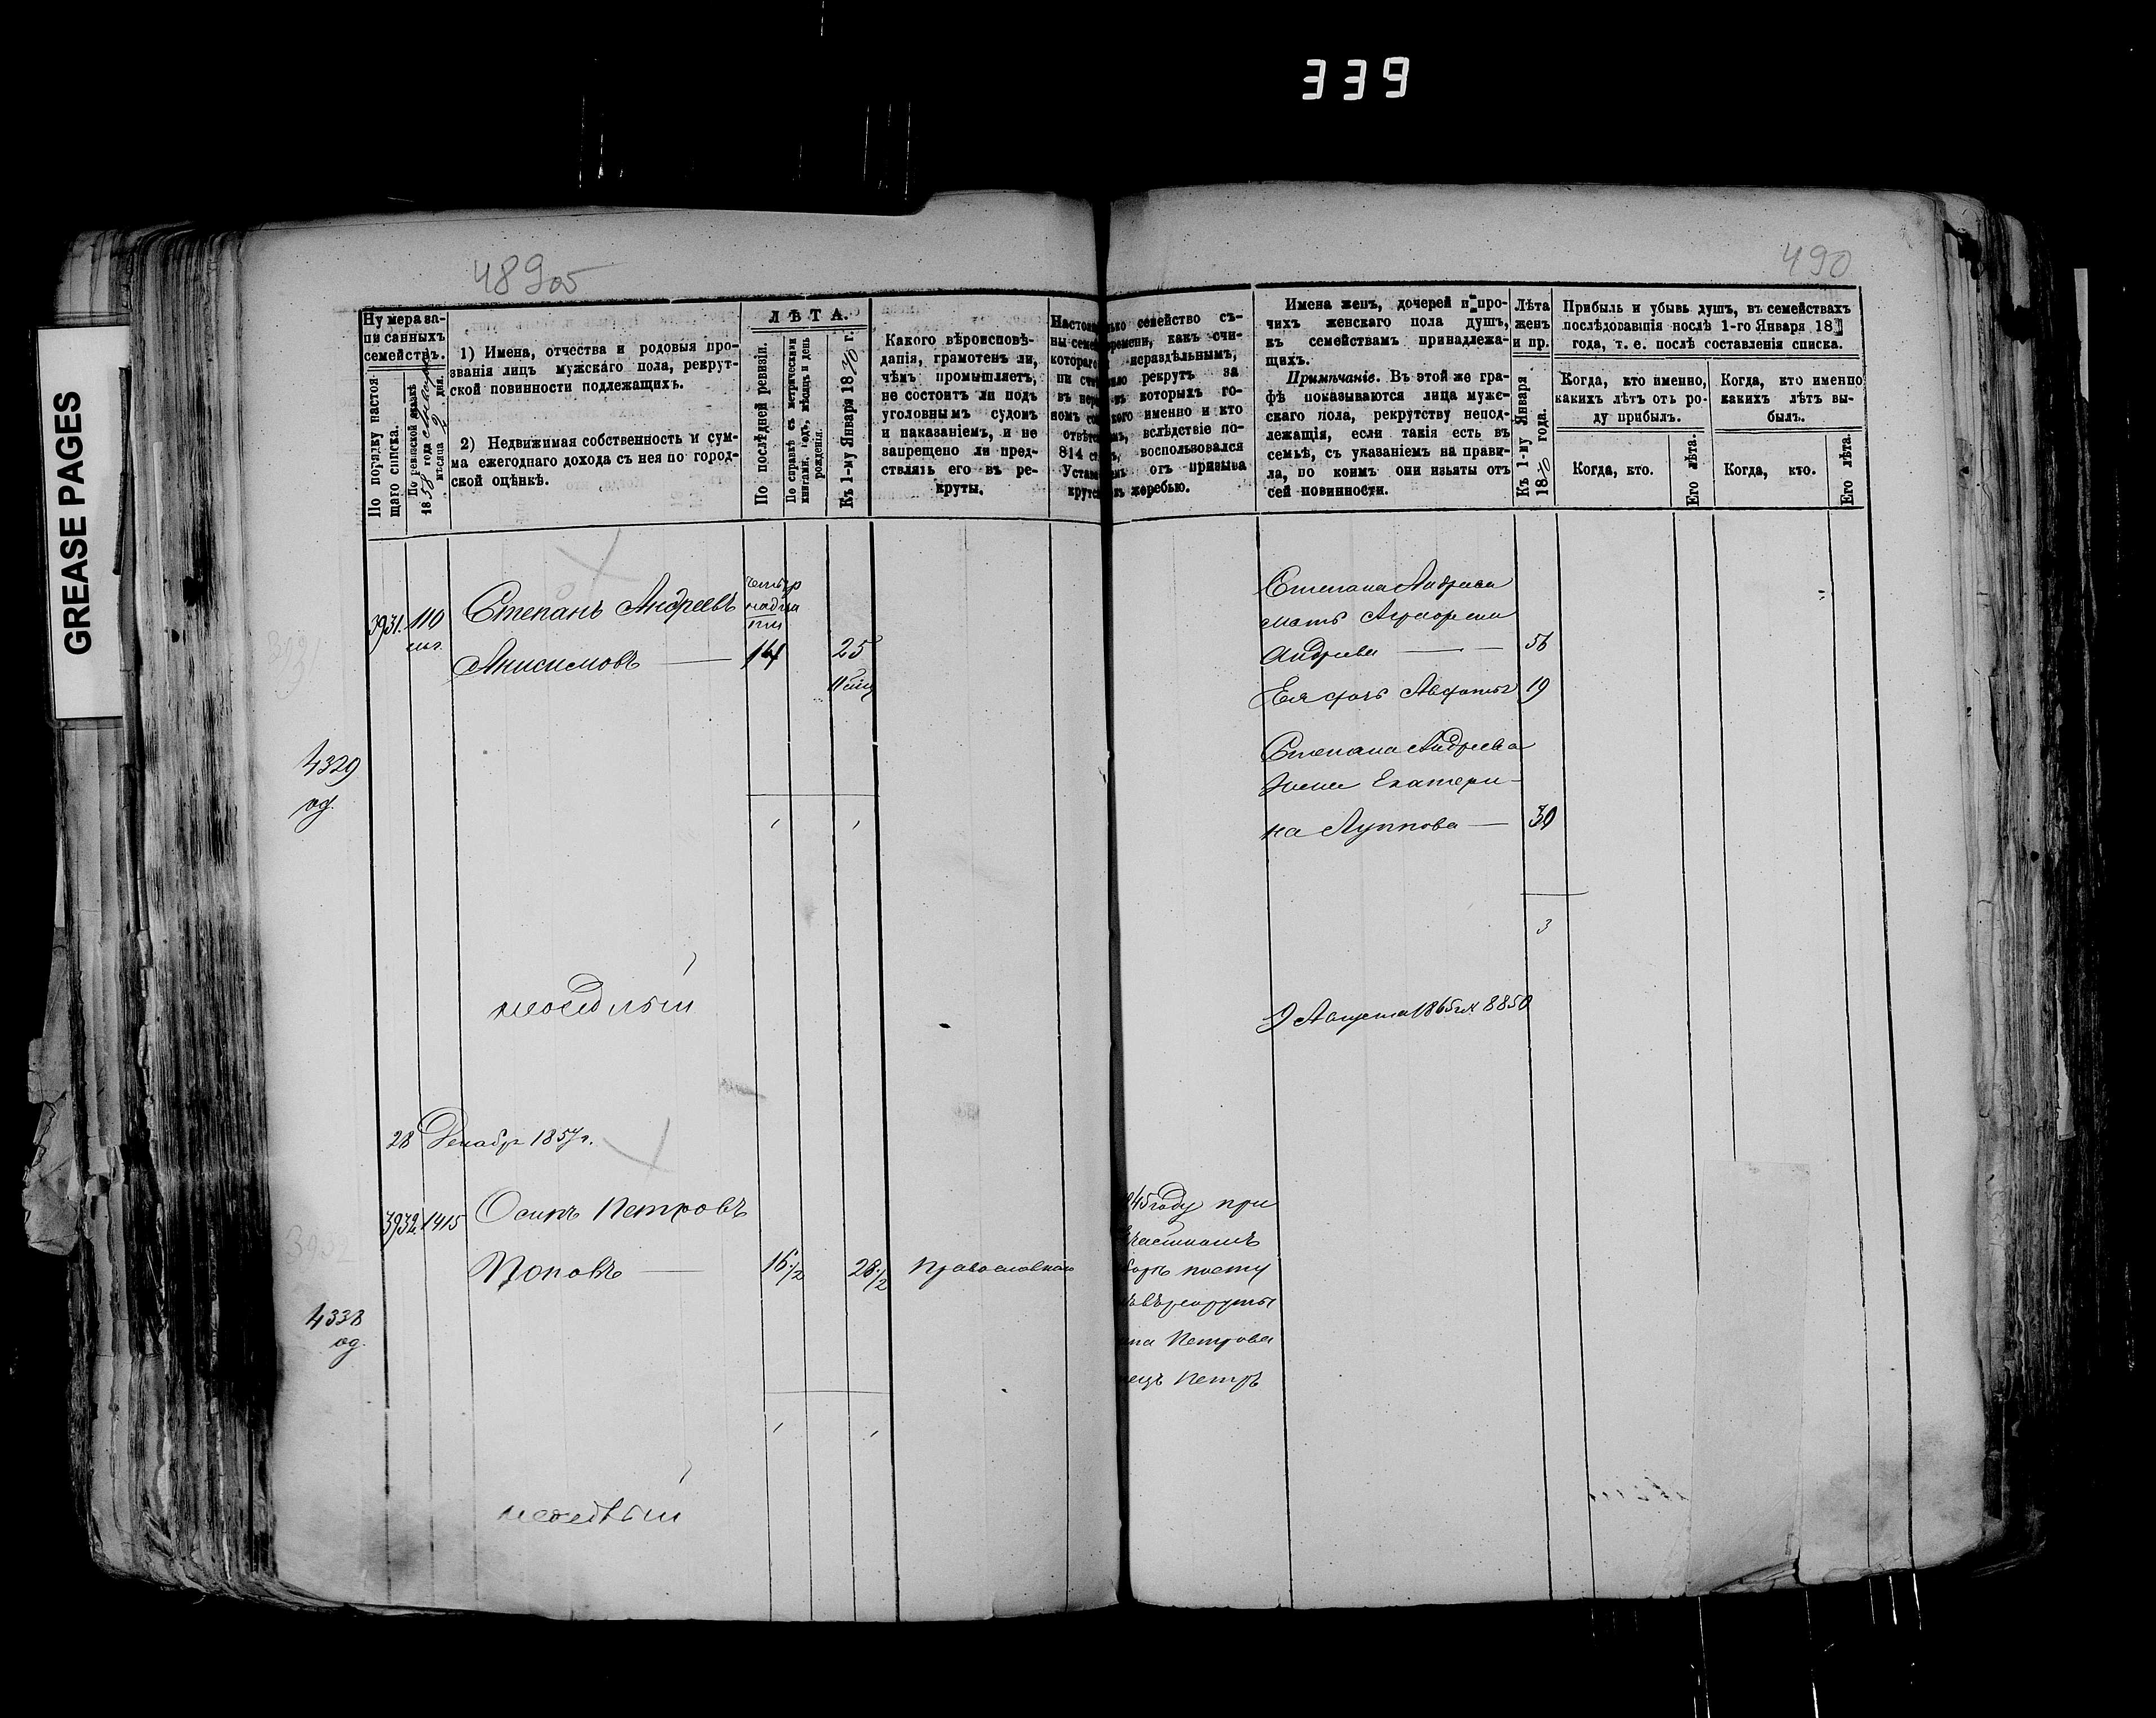 339
GREASE PAGES
489 об
490
Нумера запи санныхъ семействъ.
По порядку настоящаго списка.
По ревизской сказкѣ 1858 года мѣсяца дня.
1) Имена, отчества и родовыя прозванія лицъ мужскаго пола, рекрутской повинности подлежащихъ.
2) Недвижимая собственность и сумма ежегоднаго дохода съ нея по городской оцѣнкѣ.
ЛѢТА.
По послѣдней ревизіи.
По справкѣ съ метрическими книгами, годъ, мѣсяцъ и день рожденія.
Къ 1-му Января 1870 г.
Какого вѣроисповѣ-
данія, грамотенъ ли,
чѣмъ промышляетъ,
не состоитъ ли подъ
уголовнымъ судомъ
и наказаніемъ, и не
запрещено ли пред-
ставлять его въ ре-
круты.
семейство съ-
времени, какъ счи-
нераздѣльнымъ,
рекрутъ за
которыхъ го-
именно и кто
вслѣдствіе по-
814 воспользовался
отъ призыва
жеребью.
Имена женъ, дочерей и про-
чихъ женскаго пола душъ,
къ семействамъ принадлежа-
щихъ.
Примѣчаніе. Въ этой же гра-
фѣ показываются лица муж-
скаго пола, рекрутству непод-
лежащія, если такія есть въ
семьѣ, съ указаніемъ на прави-
ла, по коимъ они изъяты отъ
сей повинности.
Лѣта женъ и пр.
Къ 1-му Января 1870 года.
Прибыль и убывь душъ, въ семействахъ
послѣдовавшія послѣ 1-го Января 18
года, т. е. послѣ составленія списка.
Когда, кто именно,
какихъ лѣтъ отъ ро-
ду прибылъ.
Когда, кто именно
какихъ лѣтъ вы-
былъ.
Когда, кто.
Его лѣта.
Когда, кто.
Его лѣта.
3931. 110
Степанъ Андреевъ
Анисимовъ — 14 25
Степана Андреева
мать
Андреева — 56
Ея дочь 19
Степана Андреева
жена Екатери-
на Луппова — 30
4329
од.
3
неоседлый
9 Августа 1865 г. № 8850
28 Декабр 1857 г.
3932. 1415 Осипъ Петровъ
Поповъ — 16 1/2 28 1/2 Православнаго
45 году при
частномъ
посту
рекруты
Петрова
Петръ
4338
од.
неоседлый